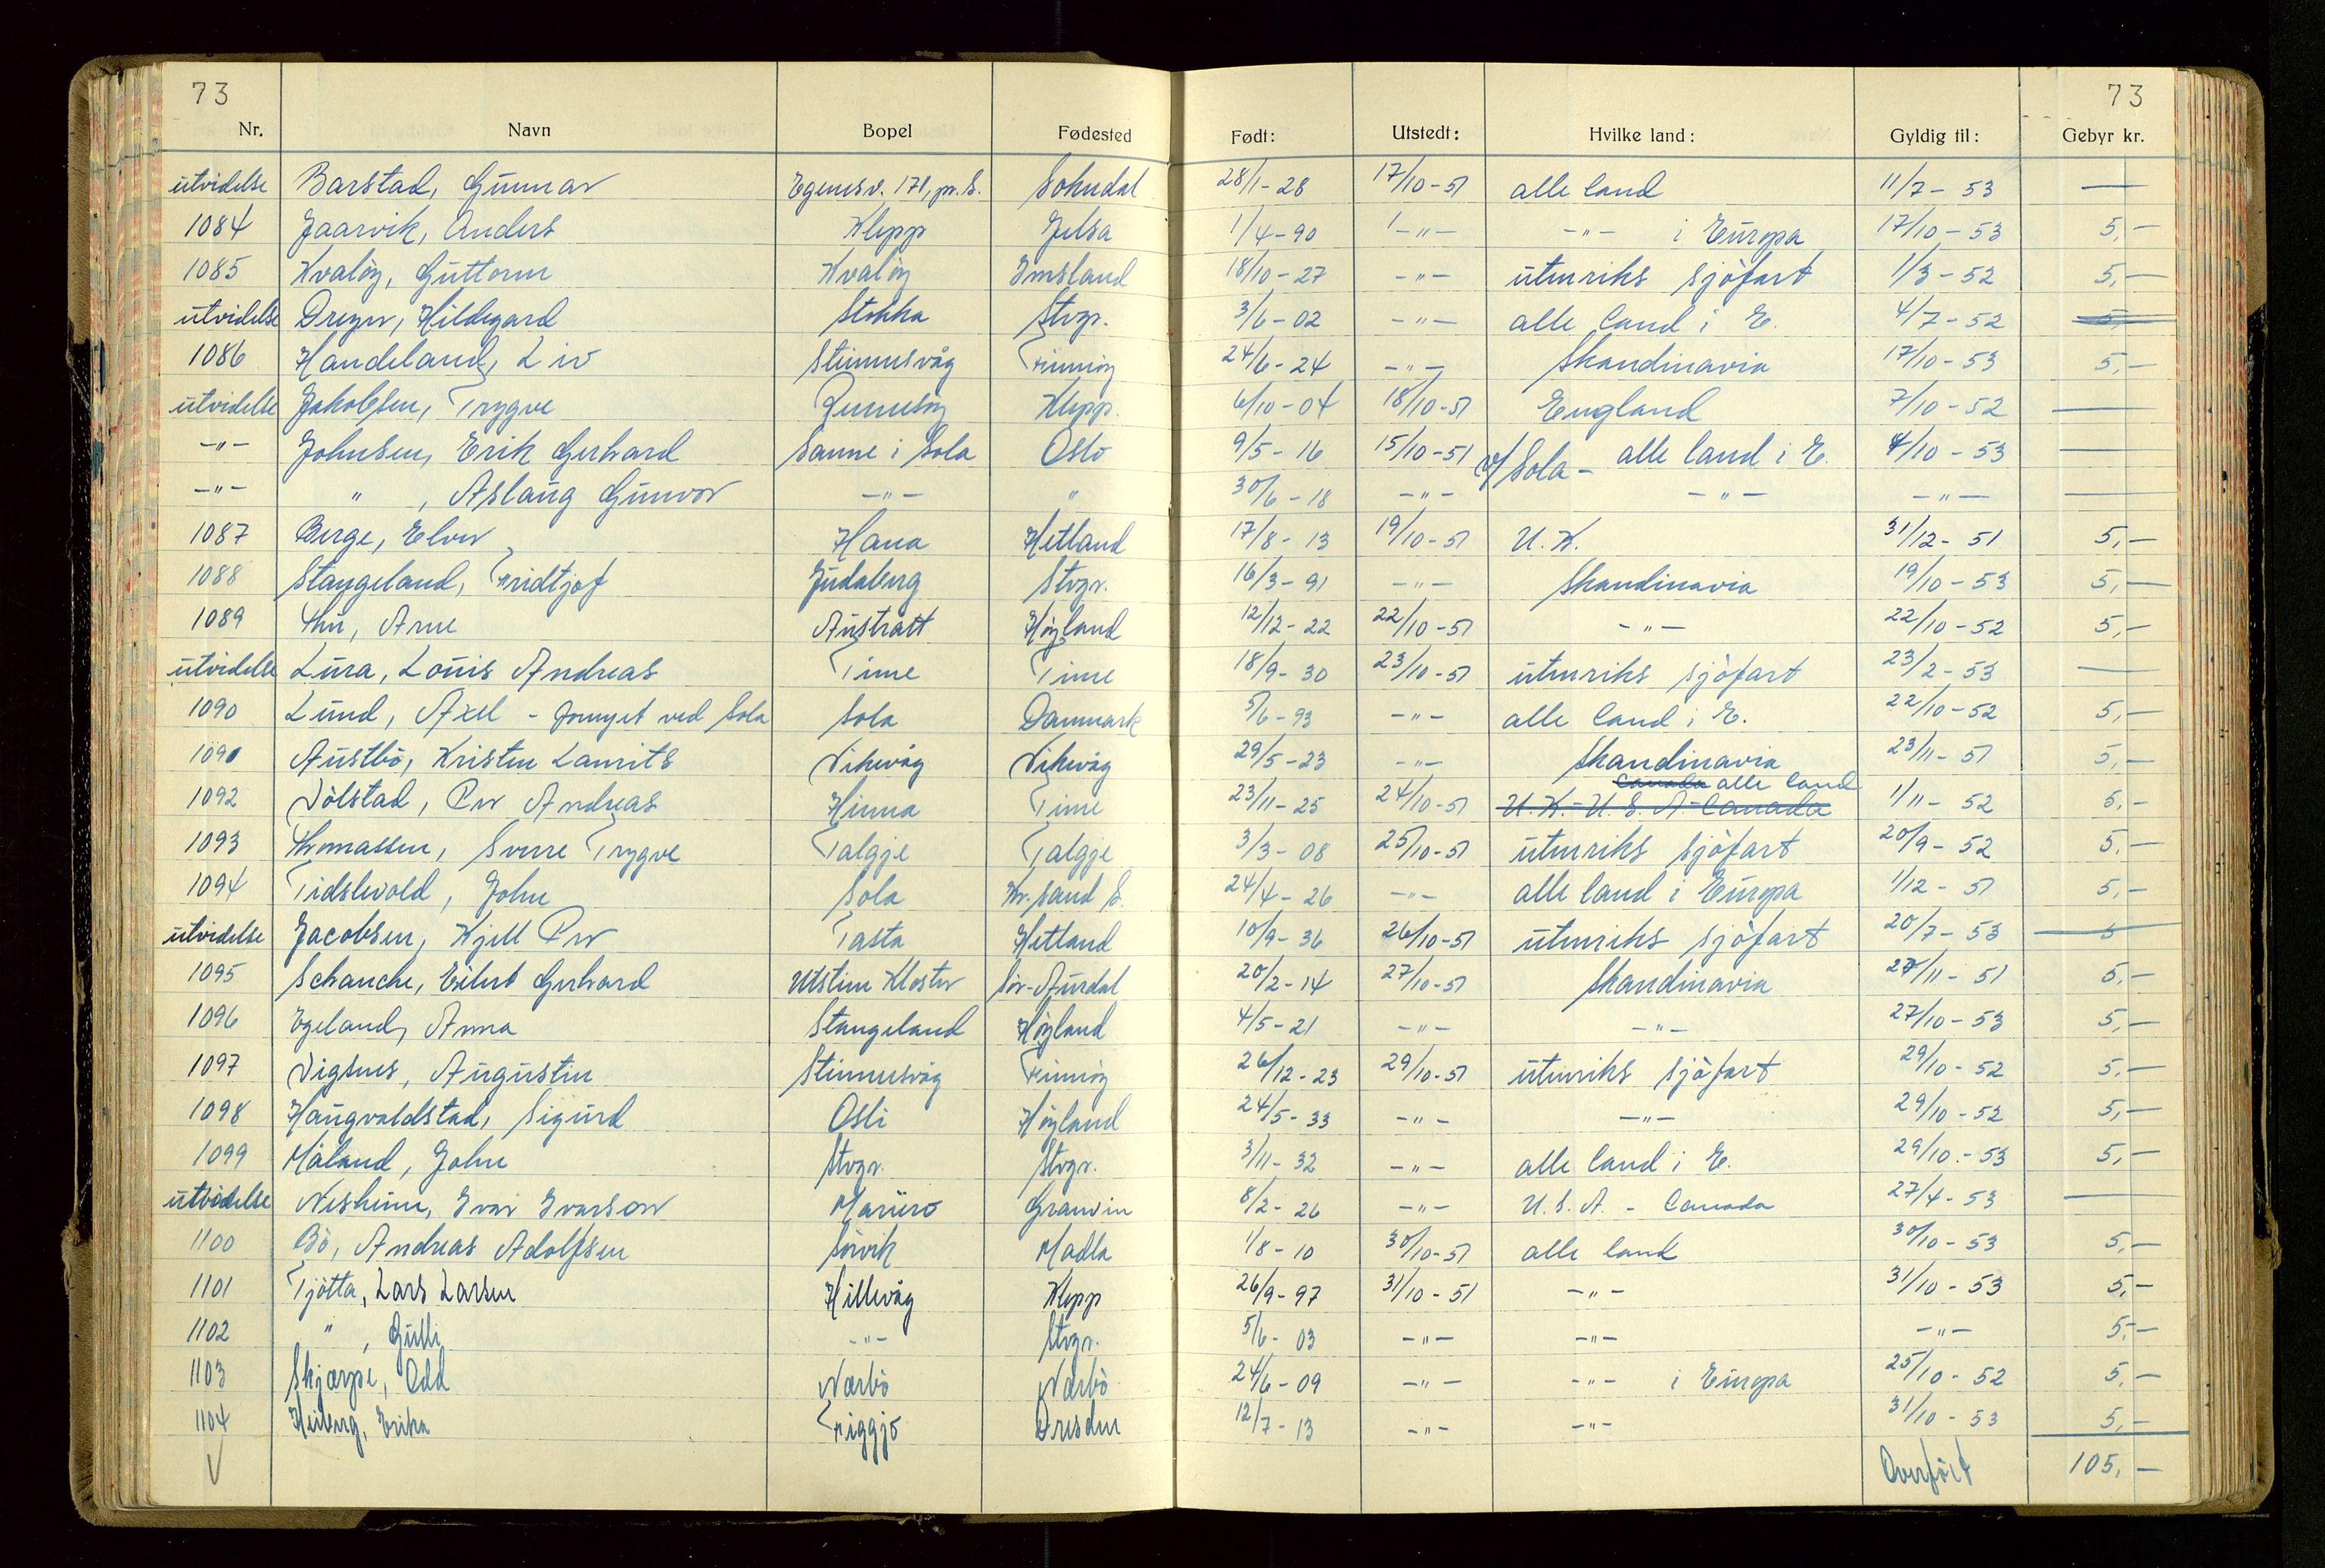 73 73
Nr. Navn Bopel Fødested Født: Utstedt: Hvilke land: Gyldig til: Gebyr kr.
utvidelse Barstad, Gunnar Egenesv. 171, pr. S. Sokndal 28/1-28 17/10-51 alle land 11/7-53 —
1084 Jaarvik, Anders Klepp Jelsa 1/4-90 -"- -"- i Europa 17/10-53 5,-
1085 Kvaløy, Guttorm Kvaløy Imsland 18/10-27 -"- utenriks sjøfart 1/3-52 5,-
utvidelse Dreyer, Hildegard Stokka Stvgr. 3/6-02 -"- alle land i E. 4/7-52 5,-
1086 Handeland, Liv Steinnesvåg Finnøy 24/6-24 -"- Skandinavia 17/10-53 5,-
utvidelse Jakobsen, Trygve Klepp. 6/10-04 18/10-51 England 7/10-52 —
-"- Johnsen, Erik Gerhard Sanne i Sola Oslo 9/5-16 15/10-51 v/Sola - alle land i E. 4/10-53 —
-"- " , Aslaug Gunvor -"- " 30/6-18 -"- -"- -"- —
1087 Berge, Elver Hana Hetland 17/8-13 19/10-51 U.K. 31/12-51 5,-
1088 Stangeland, Fridtjof Judaberg Stvgr. 16/3-91 -"- Skandinavia 19/10-53 5,-
1089 Thu, Arne Austrått Høyland 12/12-22 22/10-51 -"- 22/10-52 5,-
utvidelse Lura, Louis Andreas Time Time 18/9-30 23/10-51 utenriks sjøfart 23/2-53 —
1090 Lund, Axel - fornyet ved Sola Sola Danmark 5/6-93 -"- alle land i E. 22/10-52 5,-
1091 Austbø, Kristen Laurits Vikevåg Vikevåg 29/5-23 -"- Skandinavia 23/11-51 5,-
1092 Vølstad, Per Andreas Hinna Time 23/11-25 24/10-51 U.K.- U.S.A.- Canada Canada alle land 1/11-52 5,-
1093 Thomassen, Sverre Trygve Talgje Talgje 3/3-08 25/10-51 utenriks sjøfart 20/9-52 5.-
1094 Tidslevold, John Sola Kr.sand S. 24/4-26 -"- alle land i Europa 1/12-51 5,-
utvidelse Jacobsen, Kjell Per Tasta Hetland 10/9-36 26/10-51 utenriks sjøfart 20/7-53 5
1095 Schanche, Eilert Gerhard Utstein Kloster Sør-Aurdal 20/2-14 27/10-51 Skandinavia 27/11-51 5,-
1096 Egeland, Anna Stangeland Høyland 4/5-21 -"- -"- 27/10-53 5,-
1097 Vignes, Augustin Steinnesvåg Finnøy 26/12-23 29/10-51 utenriks sjøfart 29/10-52 5.-
1098 Haugvaldstad, Sigurd Osli Høyland 24/5-33 -"- -"- 29/10-52 5,-
1099 Måland, John Stvgr. Stvgr. 3/11-32 -"- alle land i E. 29/10-53 5,-
utvidelse Nesheim, Ivar Ivarson Mariero Granvin 8/2-26 -"- U.S.A. - Canada 27/4-53 —
1100 Bø, Andreas Adolfsen Sørvik Madla 1/8-10 30/10-51 alle land 30/10-53 5,-
1101 Tjøtta, Lars Larsen Hillevåg Klepp 26/9-97 31/10-51 -"- 31/10-53 5,-
1102 " , Gulli -"- Stvgr. 5/6-03 -"- -"- -"- 5,-
1103 Skjærpe, Odd Nærbø Nærbø 24/6-09 -"- -"- i Europa 25/10-52 5.-
1104 Heiberg, Erika Figgjo Dresden 12/7-13 -"- -"- 31/10-53 5,-
Overført 105,-